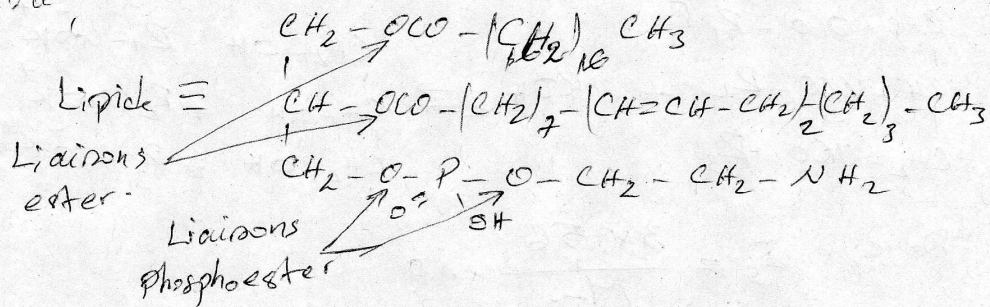 CH2 - OCO - (CH2)16 CH3
Lipide ≡ CH - OCO - (CH2)7 - (CH=CH-CH2)2-(CH2)3 - CH3
Liaisons ester.
CH2 - O - P - O - CH2 - CH2 - NH2
O OH
Liaisons
phosphoester